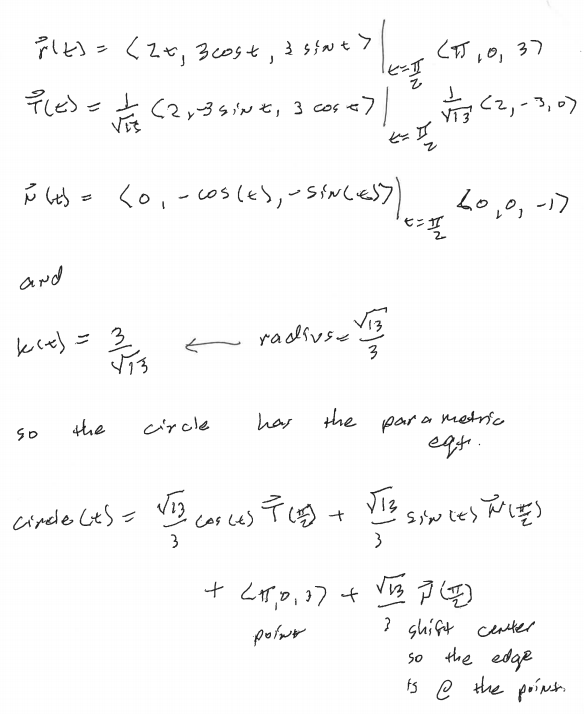 r⃗(t) = ⟨2t, 3cost, 3 sint⟩ |t=π/2 ⟨π, 0, 3⟩
T⃗(t) = 1/√13 ⟨2, -3 sint, 3 cost⟩ |t=π/2 1/√13 ⟨2, -3, 0⟩
N⃗(t) = ⟨0, -cos(t), -sin(t)⟩ |t=π/2 ⟨0, 0, -1⟩
and
k(t) = 3/√13 ← radius = √13/3
so the circle has the parametric
eqt.
circle(t) = √13/3 cos(t) T⃗(π/2) + √13/3 sin(t) N⃗(π/2)
+ ⟨π, 0, 3⟩ + √13/3 N⃗(π/2)
point shift center
so the edge
is @ the point.